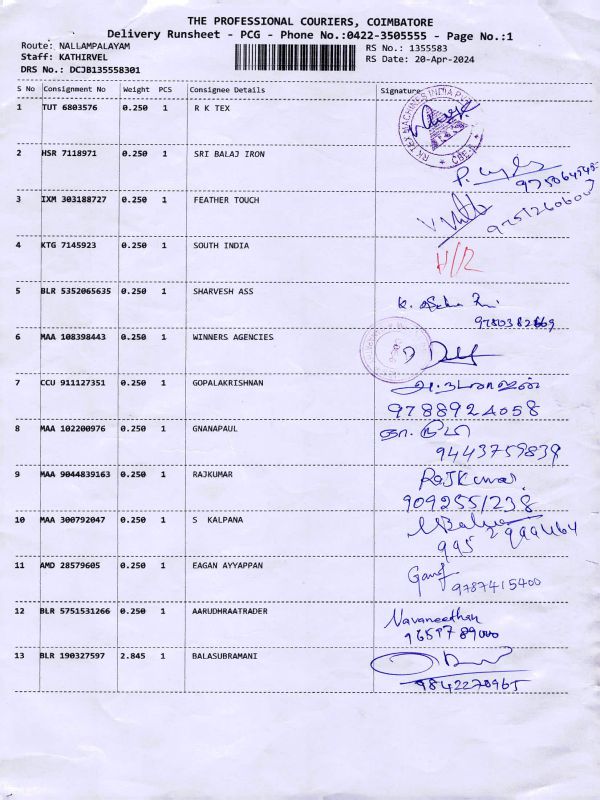 THE PROFESSIONAL COURIERS, COIMBATORE
Delivery Runsheet - PCG - Phone No.:0422-3505555 - Page No.:1
Route: NALLAMPALAYAM
RS No.: 1355583
Staff: KATHIRVEL
RS Date: 20-Apr-2024
DRS No.: DCJB135558301
S No Consignment No Weight PCS Consignee Details Signature
1 TUT 6803576 0.250 1 R K TEX
RK TEX MACHINES INDIA
CBE-6
2 HSR 7118971 0.250 1 SRI BALAJ IRON
3 IXM 303188727 0.250 1 FEATHER TOUCH
4 KTG 7145923 0.250 1 SOUTH INDIA
H/R
5 BLR 5352065635 0.250 1 SHARVESH ASS
6 MAA 108398443 0.250 1 WINNERS AGENCIES
7 CCU 911127351 0.250 1 GOPALAKRISHNAN
9788924058
8 MAA 102200976 0.250 1 GNANAPAUL
9443759839
9 MAA 9044839163 0.250 1 RAJKUMAR
RajKumar
9092551238
10 MAA 300792047 0.250 1 S KALPANA
11 AMD 28579605 0.250 1 EAGAN AYYAPPAN
9787415400
12 BLR 5751531266 0.250 1 AARUDHRAATRADER
Navaneethan
13 BLR 190327597 2.845 1 BALASUBRAMANI
9842270965